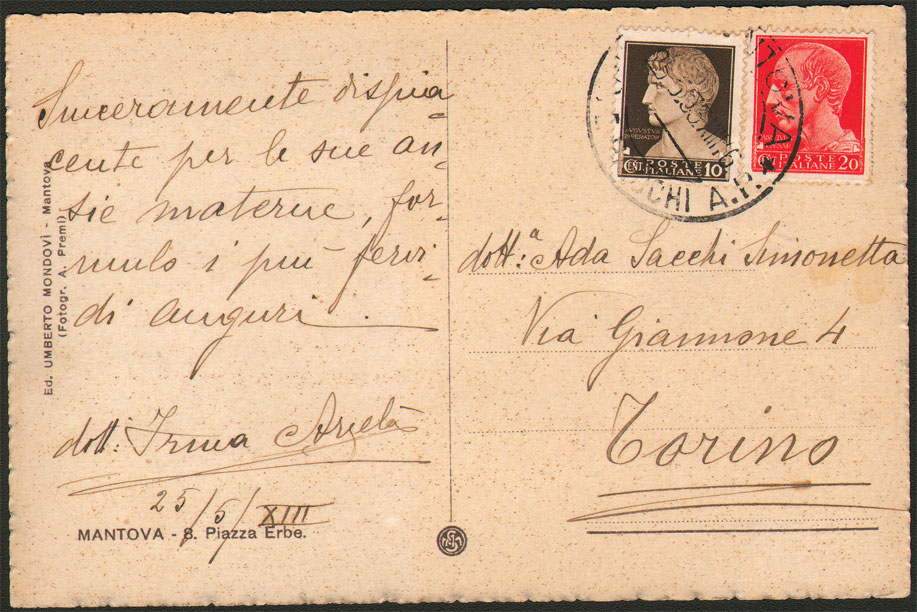 Sinceramente dispia
cente per le sue an-
sie materne, for-
mulo i più fervi-
di auguri.
dott: Irma
25/5/XIII
MANTOVA - 8. Piazza Erbe.
Ed. UMBERTO MONDOVÌ - Mantova
(Fotogr. A. Premi)
AVGVSTVS
IMPERATOR
POSTE
ITALIANE
CENT. 10
POSTE
ITALIANE
CENT. 20
dott:ª Ada Sacchi Simonetta
Via Giannone 4
Torino